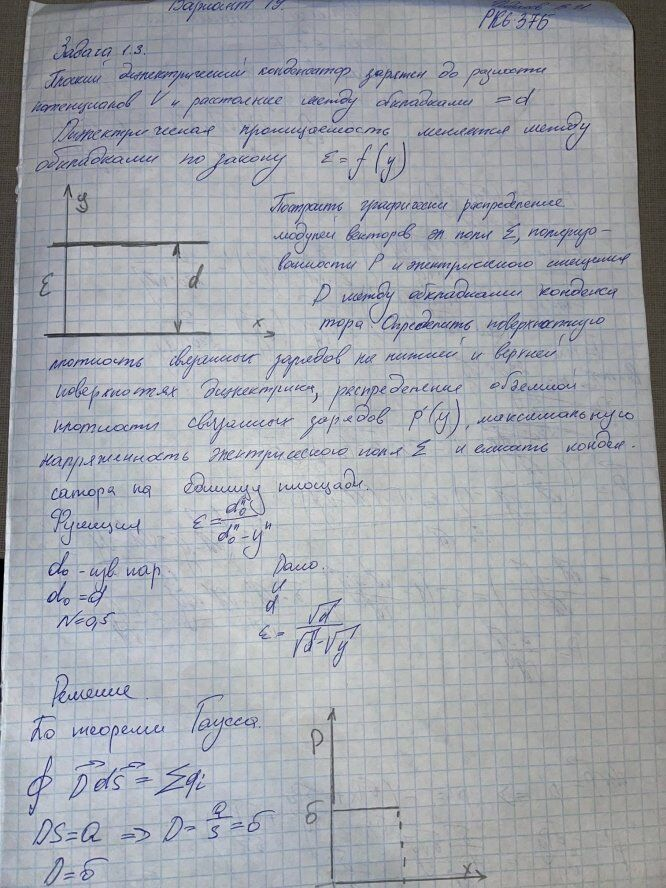 Вариант 19.
Задача 1.3.
Плоский диэлектрический конденсатор заряжен до разности
потенциалов V и расстояние между обкладками = d
Диэлектрическая проницаемость меняется между
обкладками по закону ε = f(y)
y
ε
d
x
Построить графически распределение
модулей векторов эл поля E, поляризо-
ванности P и электрического смещения
D между обкладками конденса
тора Определить поверхностную
плотность связанных зарядов на нижней и верхней
поверхностях диэлектрика, распределение объемной
плотности связанных зарядов ρ'(y), максимальную
напряженность электрического поля E и емкость конден-
сатора на единицу площади.
Функция ε = d₀ⁿ / (d₀ⁿ - yⁿ)
d₀ - изв. пар.
d₀ = d
N = 0,5
Дано.
U
d
ε = √d / (√d - √y)
Решение.
По теореме Гаусса.
∮ D⃗ dS⃗ = Σqi
DS = Q => D = Q/S = б
D = б
D
б
x